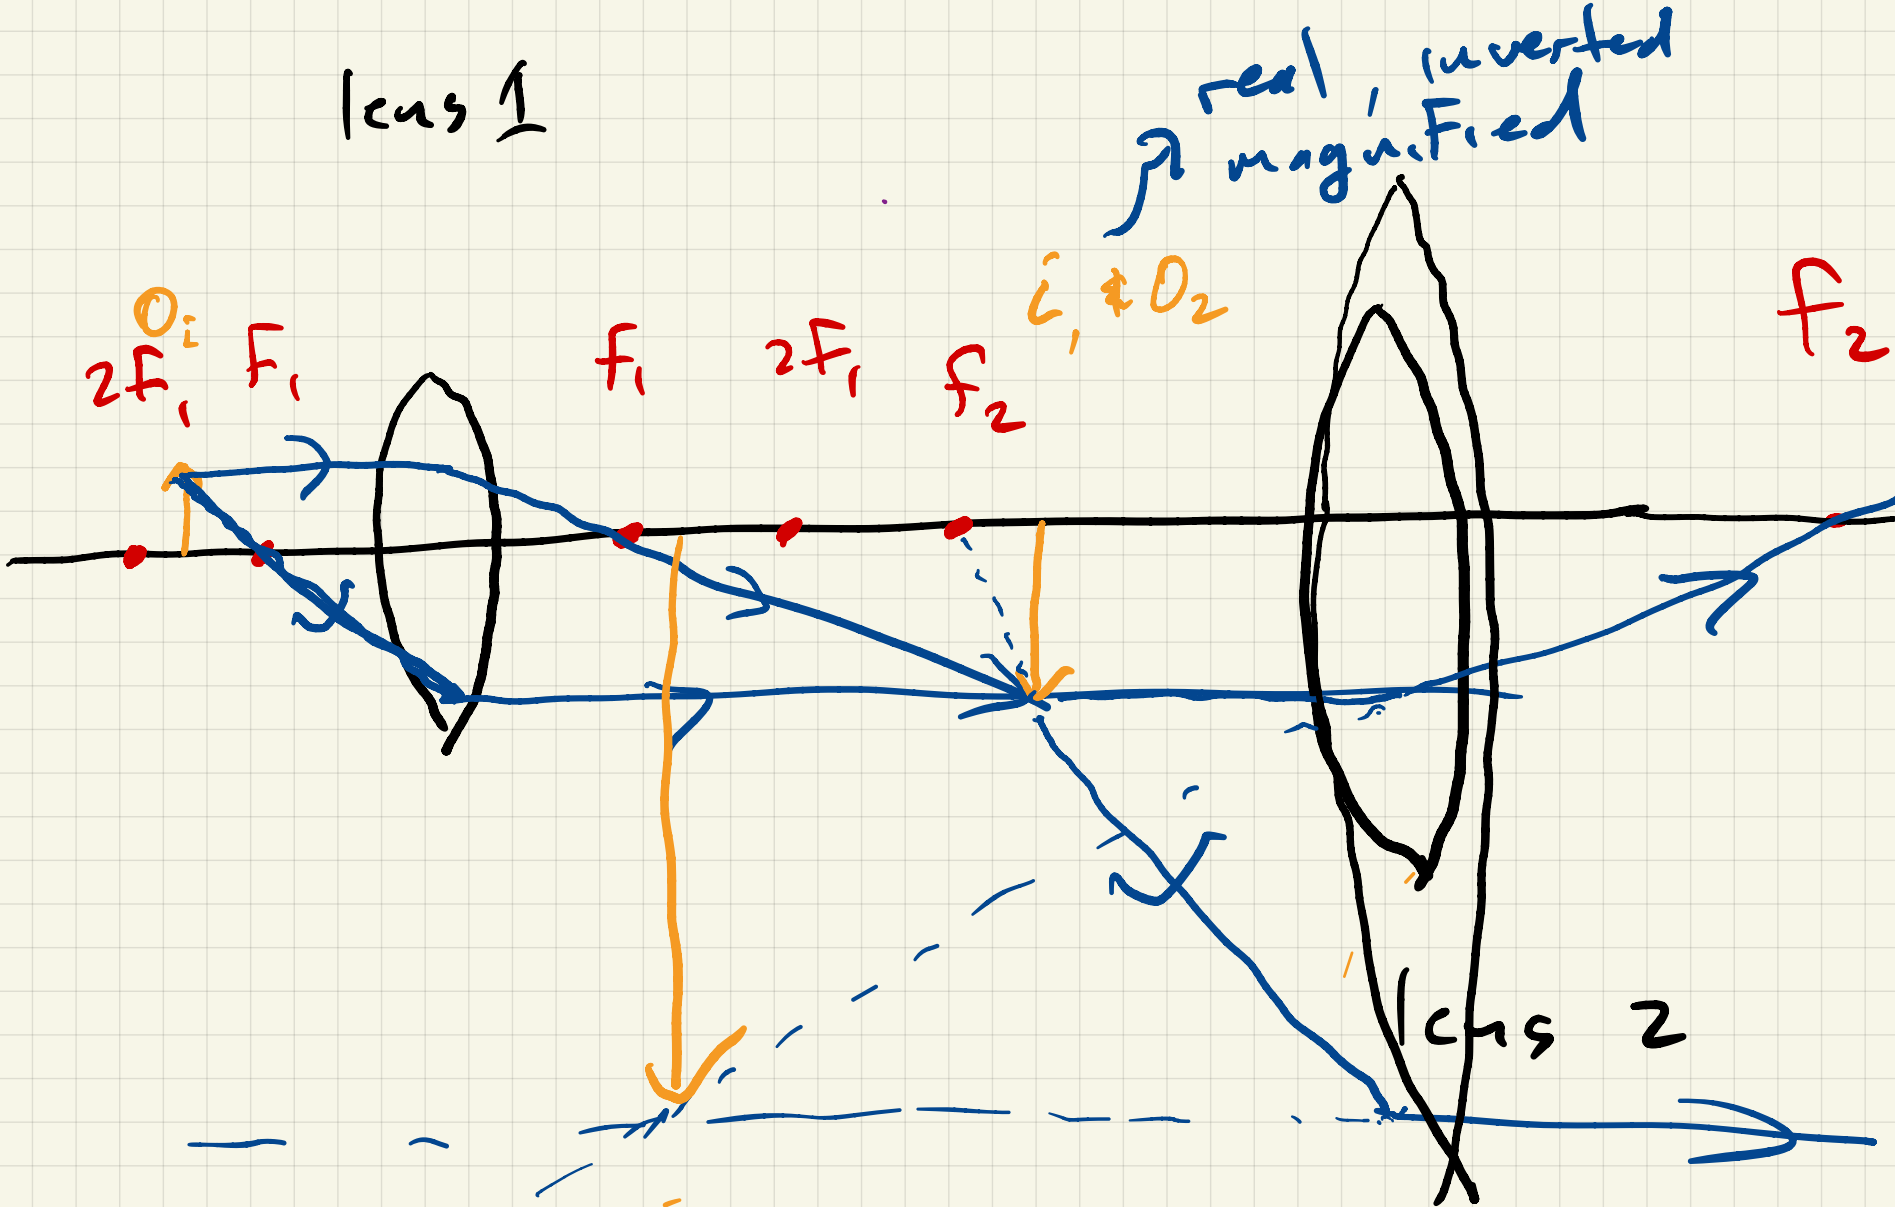 lens 1
real, inverted
magnified
O₁
i₁ & O₂
2F₁ F₁ f₁ 2F₁ f₂ f₂
lens 2